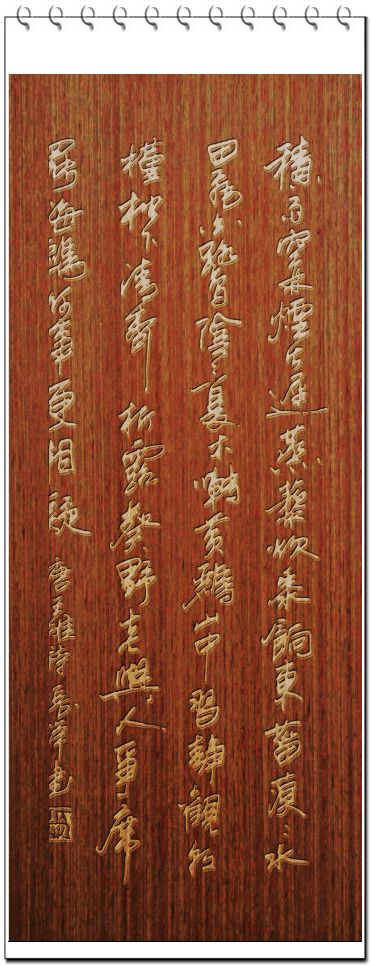 積雨空林煙火遲蒸藜炊黍餉東菑漠々水
田飛白鷺陰々夏木囀黃鸝山中習靜觀朝
槿松下清齋折露葵野老與人爭席
罷海鷗何事更相疑 唐王維詩 書